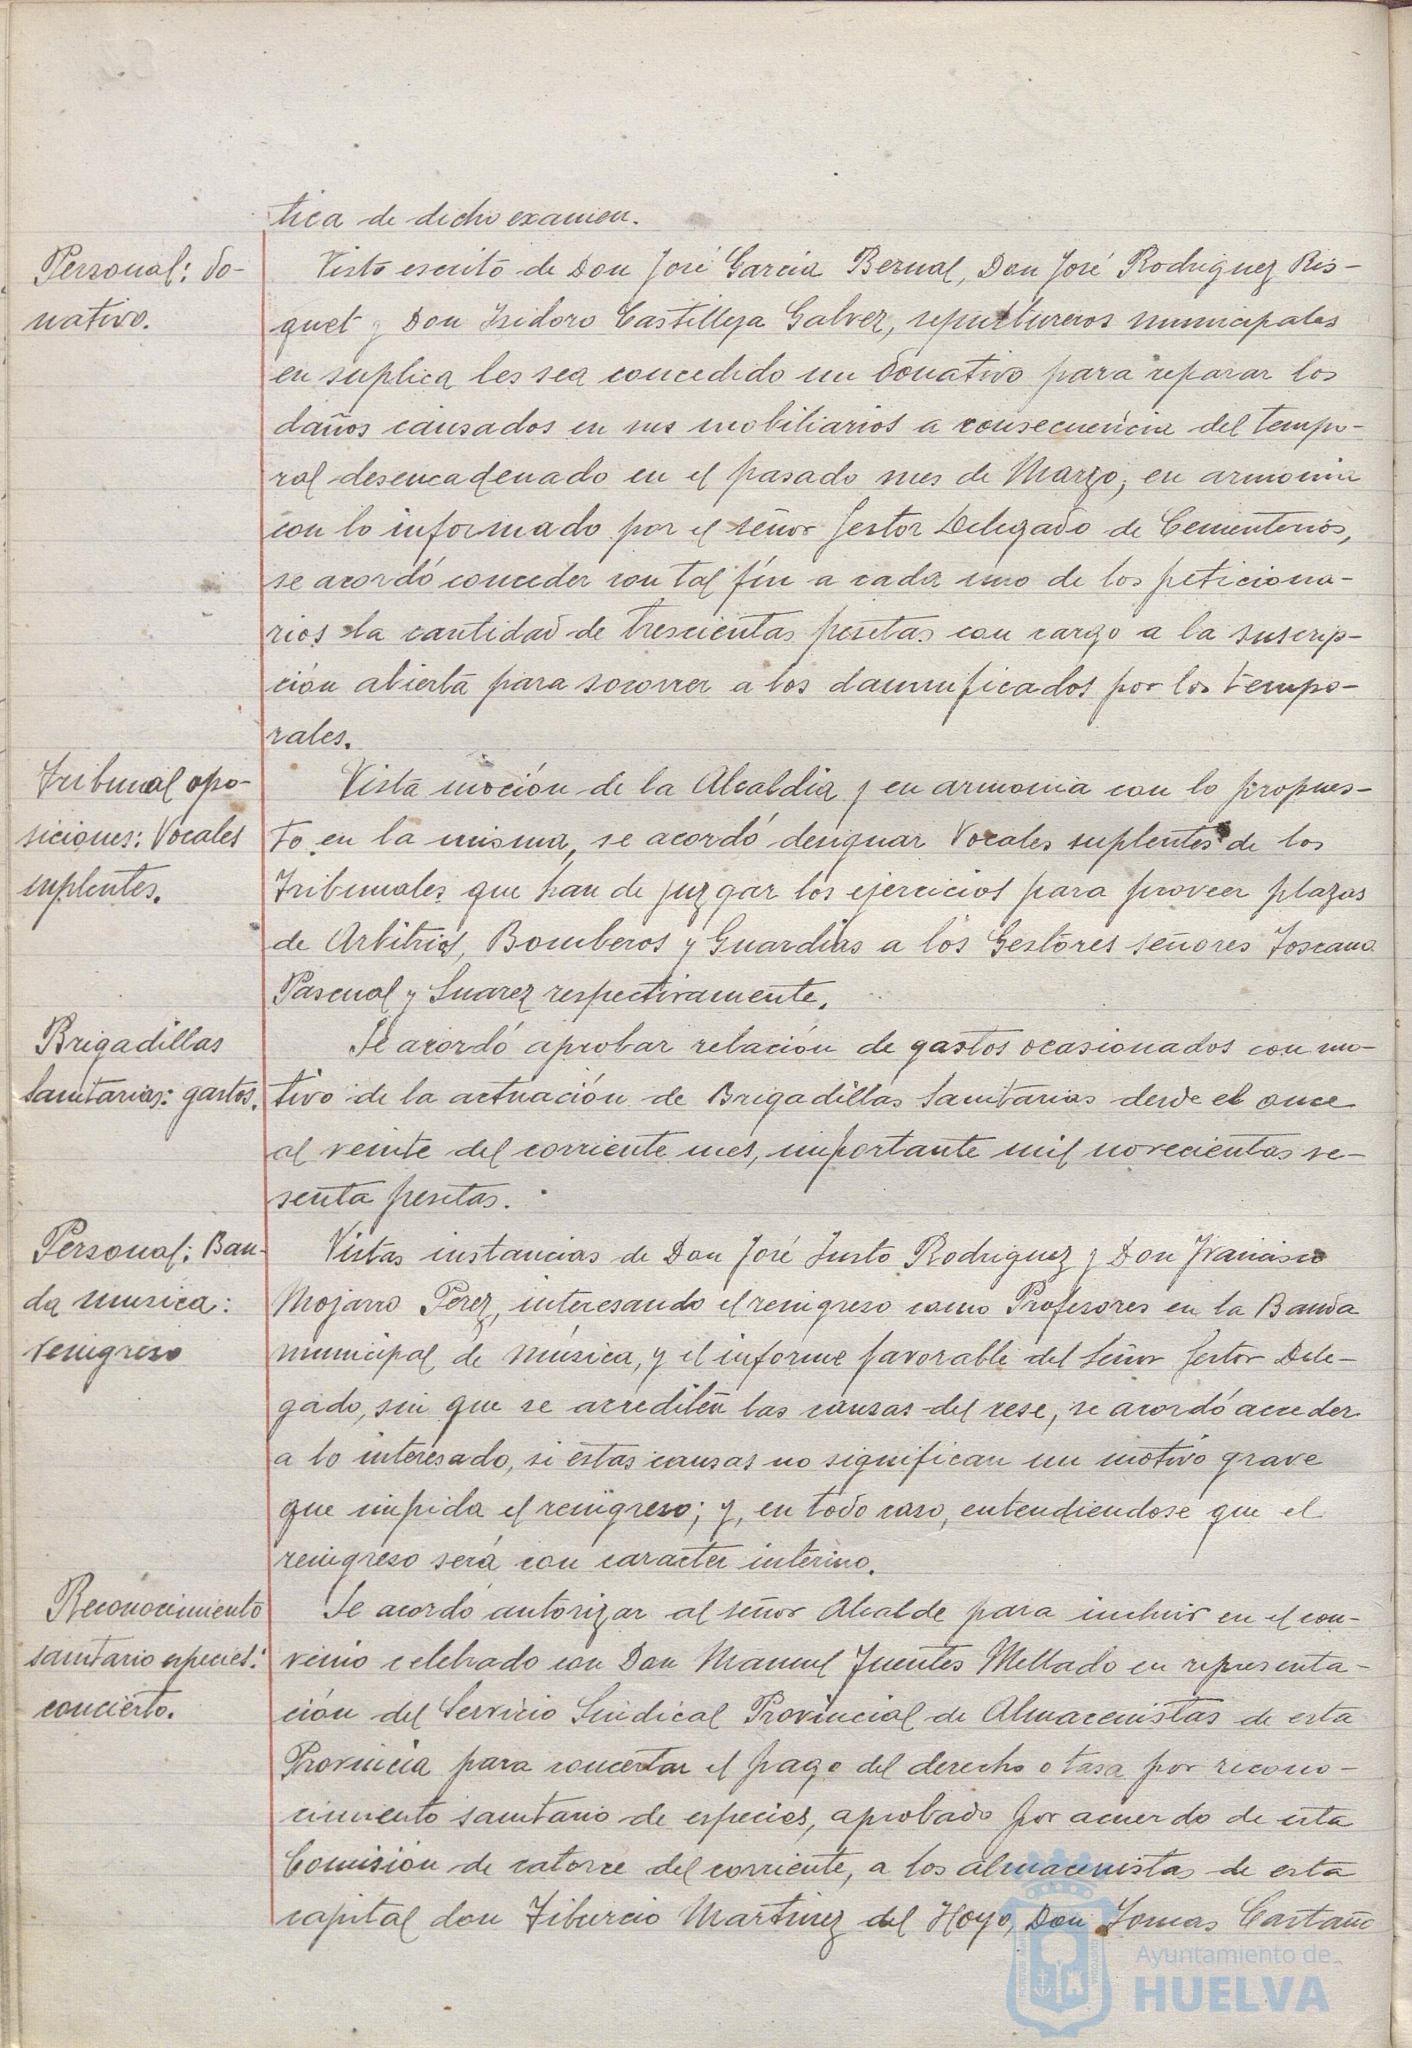 tica de dicho examen.
Personal: do-
nativo.
Visto escrito de Don José García Bernal, Don José Rodriguez Ris-
quet y Don Isidoro Castilleja Galvez, sepultureros municipales
en suplica les sea concedido un donativo para reparar los
daños causados en sus mobiliarios a consecuencia del tempo-
ral desencadenado en el pasado mes de Marzo, en armonia
con lo informado por el señor Gestor Delegado de Cementerios,
se acordó conceder con tal fín a cada uno de los peticiona-
rios la cantidad de trescientas pesetas con cargo a la suscrip-
ción abierta para socorrer a los damnificados por los tempo-
rales.
Tribunal opo-
siciones: Vocales
suplentes.
Vista moción de la Alcaldia y en armonia con lo propues-
to en la misma, se acordó designar Vocales suplentes de los
Tribunales que han de juzgar los ejercicios para proveer plazas
de Arbitrios, Bomberos y Guardias a los Gestores señores Toscano
Pascual y Suarez respectivamente.
Brigadillas
Sanitarias: gastos.
Se acordó aprobar relación de gastos ocasionados con mo-
tivo de la actuación de Brigadillas Sanitarias desde el once
al veinte del corriente mes, importante mil novecientas se-
senta pesetas.
Personal: Ban-
da musica:
reingreso
Vistas instancias de Don José Justo Rodriguez y Don Francisco
Mojarro Perez, interesando el reingreso como Profesores en la Banda
municipal de música, y el informe favorable del Señor Gestor Dele-
gado, sin que se acrediten las causas del cese, se acordó acceder
a lo interesado, si estas causas no significan un motivo grave
que impida el reingreso; y, en todo caso, entendiendose que el
reingreso será con caracter interino.
Reconocimiento
sanitario especies:
concierto.
Se acordó autorizar al señor Alcalde para incluir en el con-
venio celebrado con Don Manuel Fuentes Mellado en representa-
ción del Servicio Sindical Provincial de Almacenistas de esta
Provincia para concertar el pago del derecho o tasa por recono-
cimiento sanitario de especies, aprobado por acuerdo de esta
Comisión de catorce del corriente, a los almacenistas de esta
capital don Tiburcio Martinez del Hoyo, Don Tomas Castaño
Ayuntamiento de
HUELVA